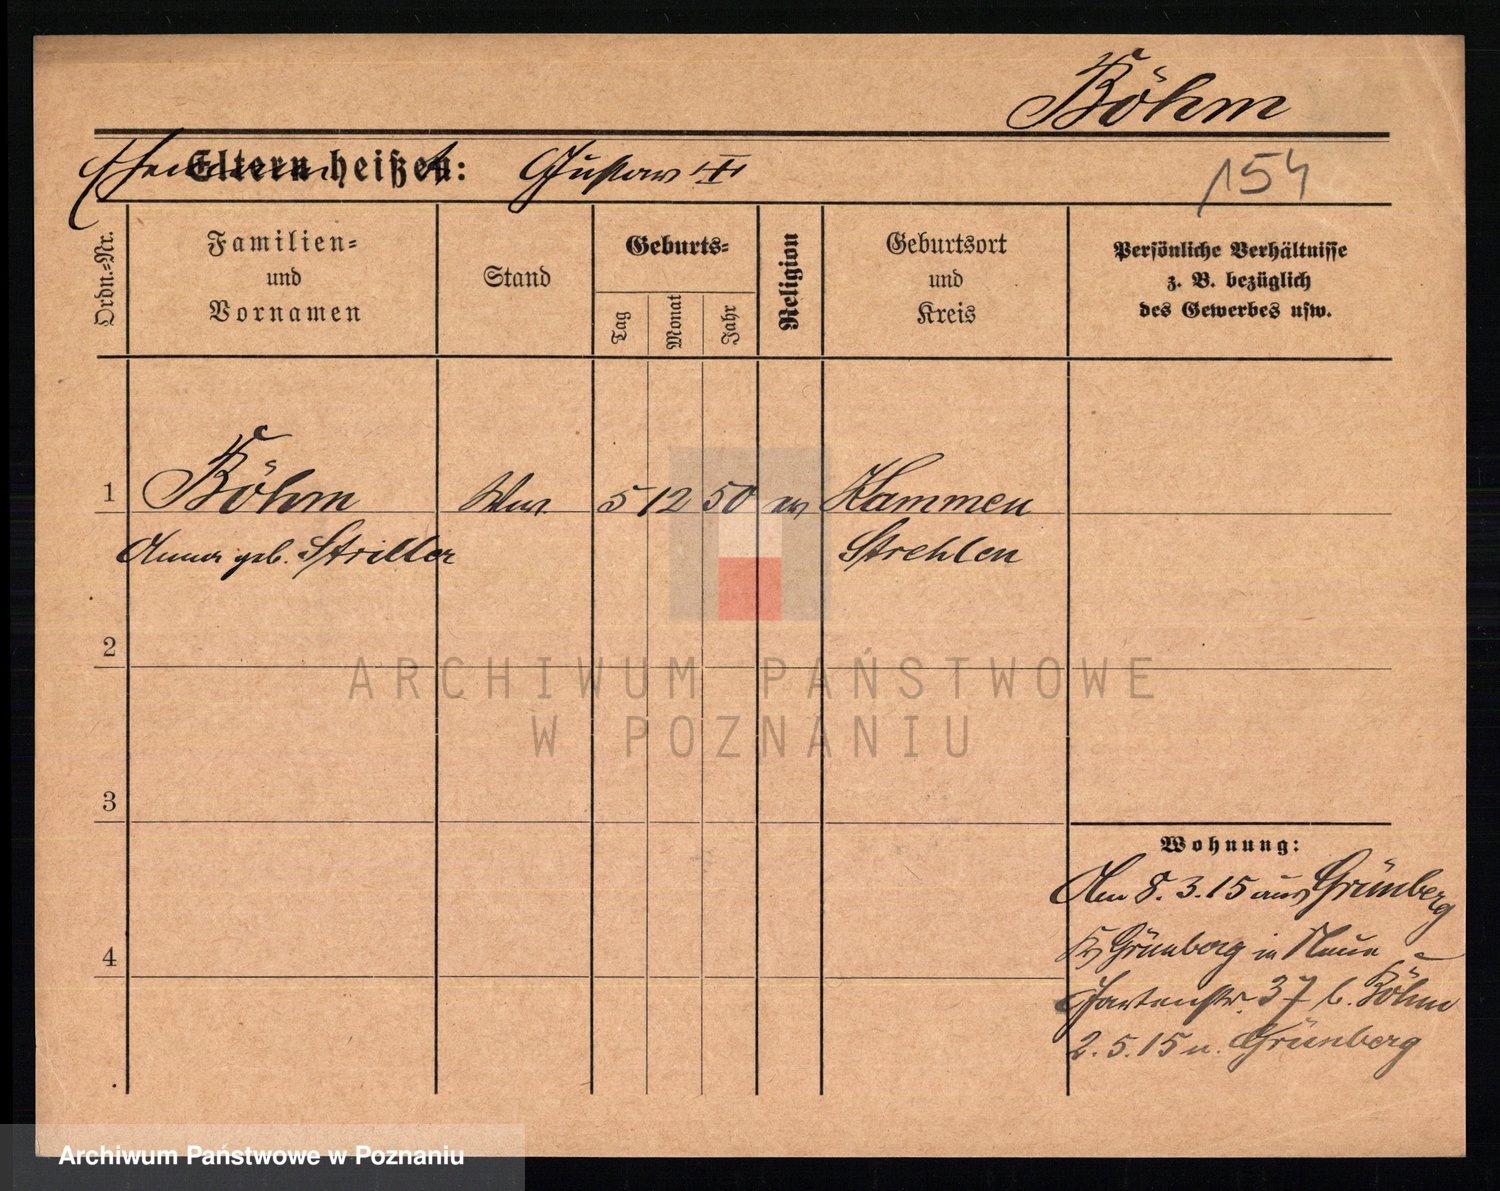 Böhm
Eltern heißen: Gustav "I"
154
Ordn.-Nr.
Familien-
und
Vornamen
Stand
Geburts-
Tag
Monat
Jahr
Religion
Geburtsort
und
Kreis
Persönliche Verhältnisse
z. B. bezüglich
des Gewerbes usw.
1 Böhm Ww. 5 12 50 ev Kammen
Anna geb. Striller Strehlen
2
3
4
Wohnung:
Am 8.3.15 aus Grünberg
Kr Grünberg in Neue
Gartenstr. 37 b. Böhm
2.5.15 n. Grünberg
ARCHIWUM PAŃSTWOWE
W POZNANIU
Archiwum Państwowe w Poznaniu